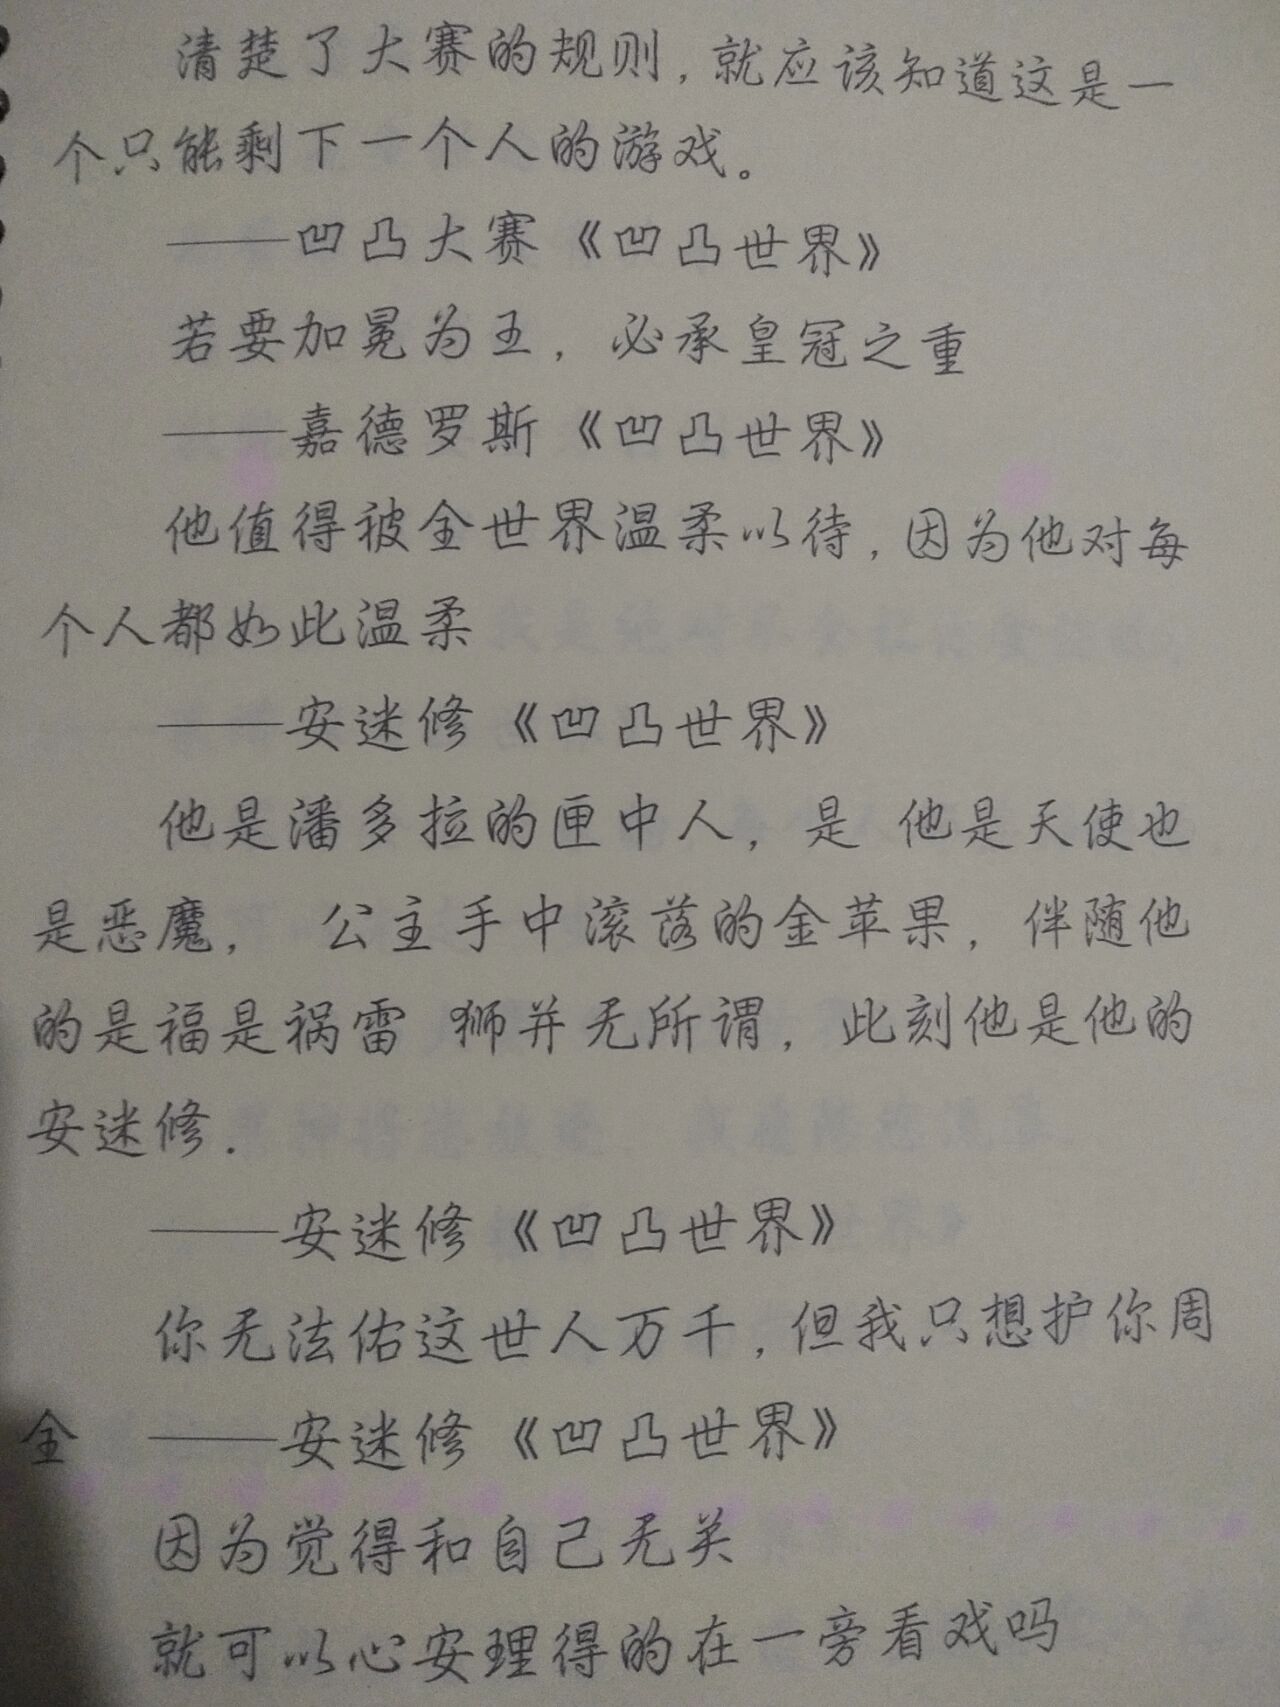 清楚了大赛的规则，就应该知道这是一
个只能剩下一个人的游戏。
——凹凸大赛《凹凸世界》
若要加冕为王，必承皇冠之重
——嘉德罗斯《凹凸世界》
他值得被全世界温柔以待，因为他对每
个人都如此温柔
——安迷修《凹凸世界》
他是潘多拉的匣中人，是 他是天使也
是恶魔， 公主手中滚落的金苹果，伴随他
的是福是祸雷 狮并无所谓，此刻他是他的
安迷修.
——安迷修《凹凸世界》
你无法佑这世人万千，但我只想护你周
全 ——安迷修《凹凸世界》
因为觉得和自己无关
就可以心安理得的在一旁看戏吗